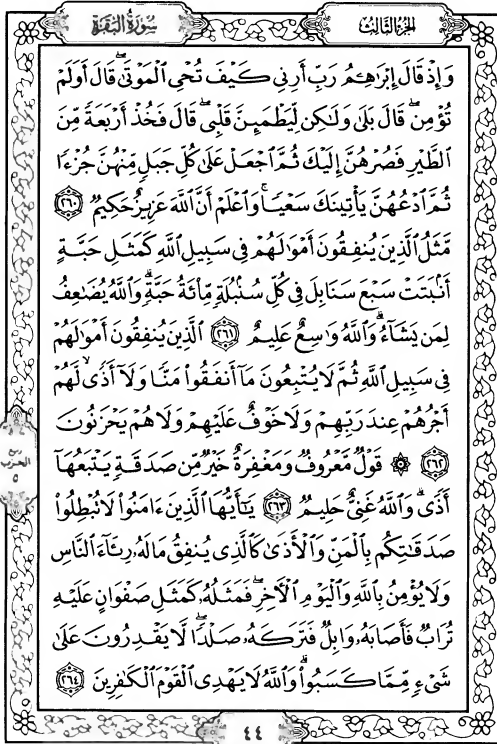 سُورَةُ البَقَرَةِ
الجزء الثالث
وَإِذْ قَالَ إِبْرَٰهِـۧمُ رَبِّ أَرِنِى كَيْفَ تُحْىِ ٱلْمَوْتَىٰ ۖ قَالَ أَوَلَمْ
تُؤْمِن ۖ قَالَ بَلَىٰ وَلَٰكِن لِّيَطْمَئِنَّ قَلْبِى ۖ قَالَ فَخُذْ أَرْبَعَةً مِّنَ
ٱلطَّيْرِ فَصُرْهُنَّ إِلَيْكَ ثُمَّ ٱجْعَلْ عَلَىٰ كُلِّ جَبَلٍ مِّنْهُنَّ جُزْءًا
ثُمَّ ٱدْعُهُنَّ يَأْتِينَكَ سَعْيًا ۚ وَٱعْلَمْ أَنَّ ٱللَّهَ عَزِيزٌ حَكِيمٌ ٢٦٠
مَّثَلُ ٱلَّذِينَ يُنفِقُونَ أَمْوَٰلَهُمْ فِى سَبِيلِ ٱللَّهِ كَمَثَلِ حَبَّةٍ
أَنۢبَتَتْ سَبْعَ سَنَابِلَ فِى كُلِّ سُنۢبُلَةٍ مِّا۟ئَةُ حَبَّةٍ ۗ وَٱللَّهُ يُضَٰعِفُ
لِمَن يَشَآءُ ۗ وَٱللَّهُ وَٰسِعٌ عَلِيمٌ ٢٦١ ٱلَّذِينَ يُنفِقُونَ أَمْوَٰلَهُمْ
فِى سَبِيلِ ٱللَّهِ ثُمَّ لَا يُتْبِعُونَ مَآ أَنفَقُوا۟ مَنًّا وَلَآ أَذًى ۙ لَّهُمْ
أَجْرُهُمْ عِندَ رَبِّهِمْ وَلَا خَوْفٌ عَلَيْهِمْ وَلَا هُمْ يَحْزَنُونَ
٢٦٢ ۞ قَوْلٌ مَّعْرُوفٌ وَمَغْفِرَةٌ خَيْرٌ مِّن صَدَقَةٍ يَتْبَعُهَآ
أَذًى ۗ وَٱللَّهُ غَنِىٌّ حَلِيمٌ ٢٦٣ يَٰٓأَيُّهَا ٱلَّذِينَ ءَامَنُوا۟ لَا تُبْطِلُوا۟
صَدَقَٰتِكُم بِٱلْمَنِّ وَٱلْأَذَىٰ كَٱلَّذِى يُنفِقُ مَالَهُۥ رِئَآءَ ٱلنَّاسِ
وَلَا يُؤْمِنُ بِٱللَّهِ وَٱلْيَوْمِ ٱلْءَاخِرِ ۖ فَمَثَلُهُۥ كَمَثَلِ صَفْوَانٍ عَلَيْهِ
تُرَابٌ فَأَصَابَهُۥ وَابِلٌ فَتَرَكَهُۥ صَلْدًا ۖ لَّا يَقْدِرُونَ عَلَىٰ
شَىْءٍ مِّمَّا كَسَبُوا۟ ۗ وَٱللَّهُ لَا يَهْدِى ٱلْقَوْمَ ٱلْكَٰفِرِينَ ٢٦٤
ربع
الحزب
٥
٤٤